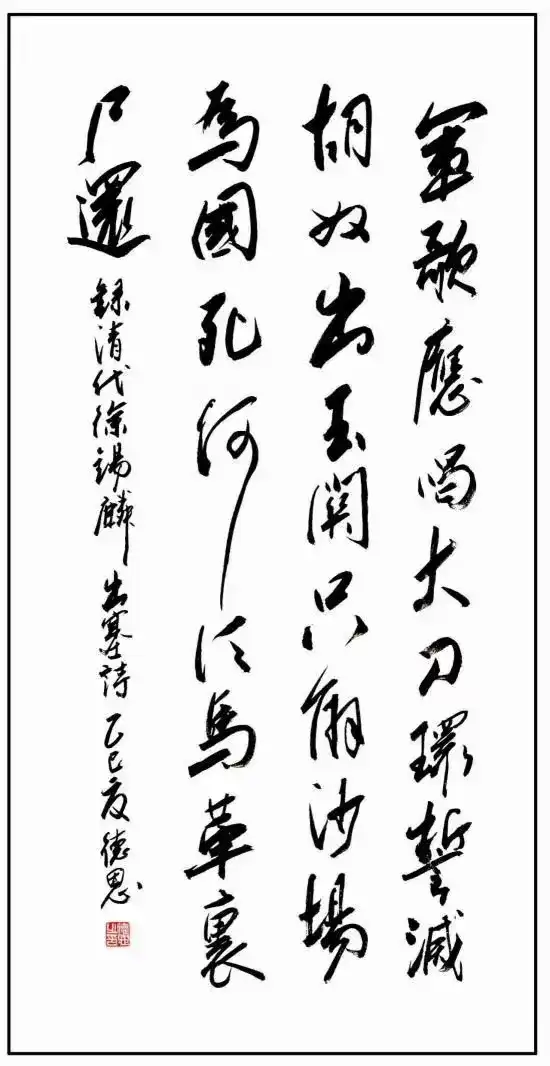 軍歌應唱大刀環誓滅
胡奴出玉關只解沙場
為國死何須馬革裹
尸還
錄清代徐錫麟出塞詩乙巳夏德